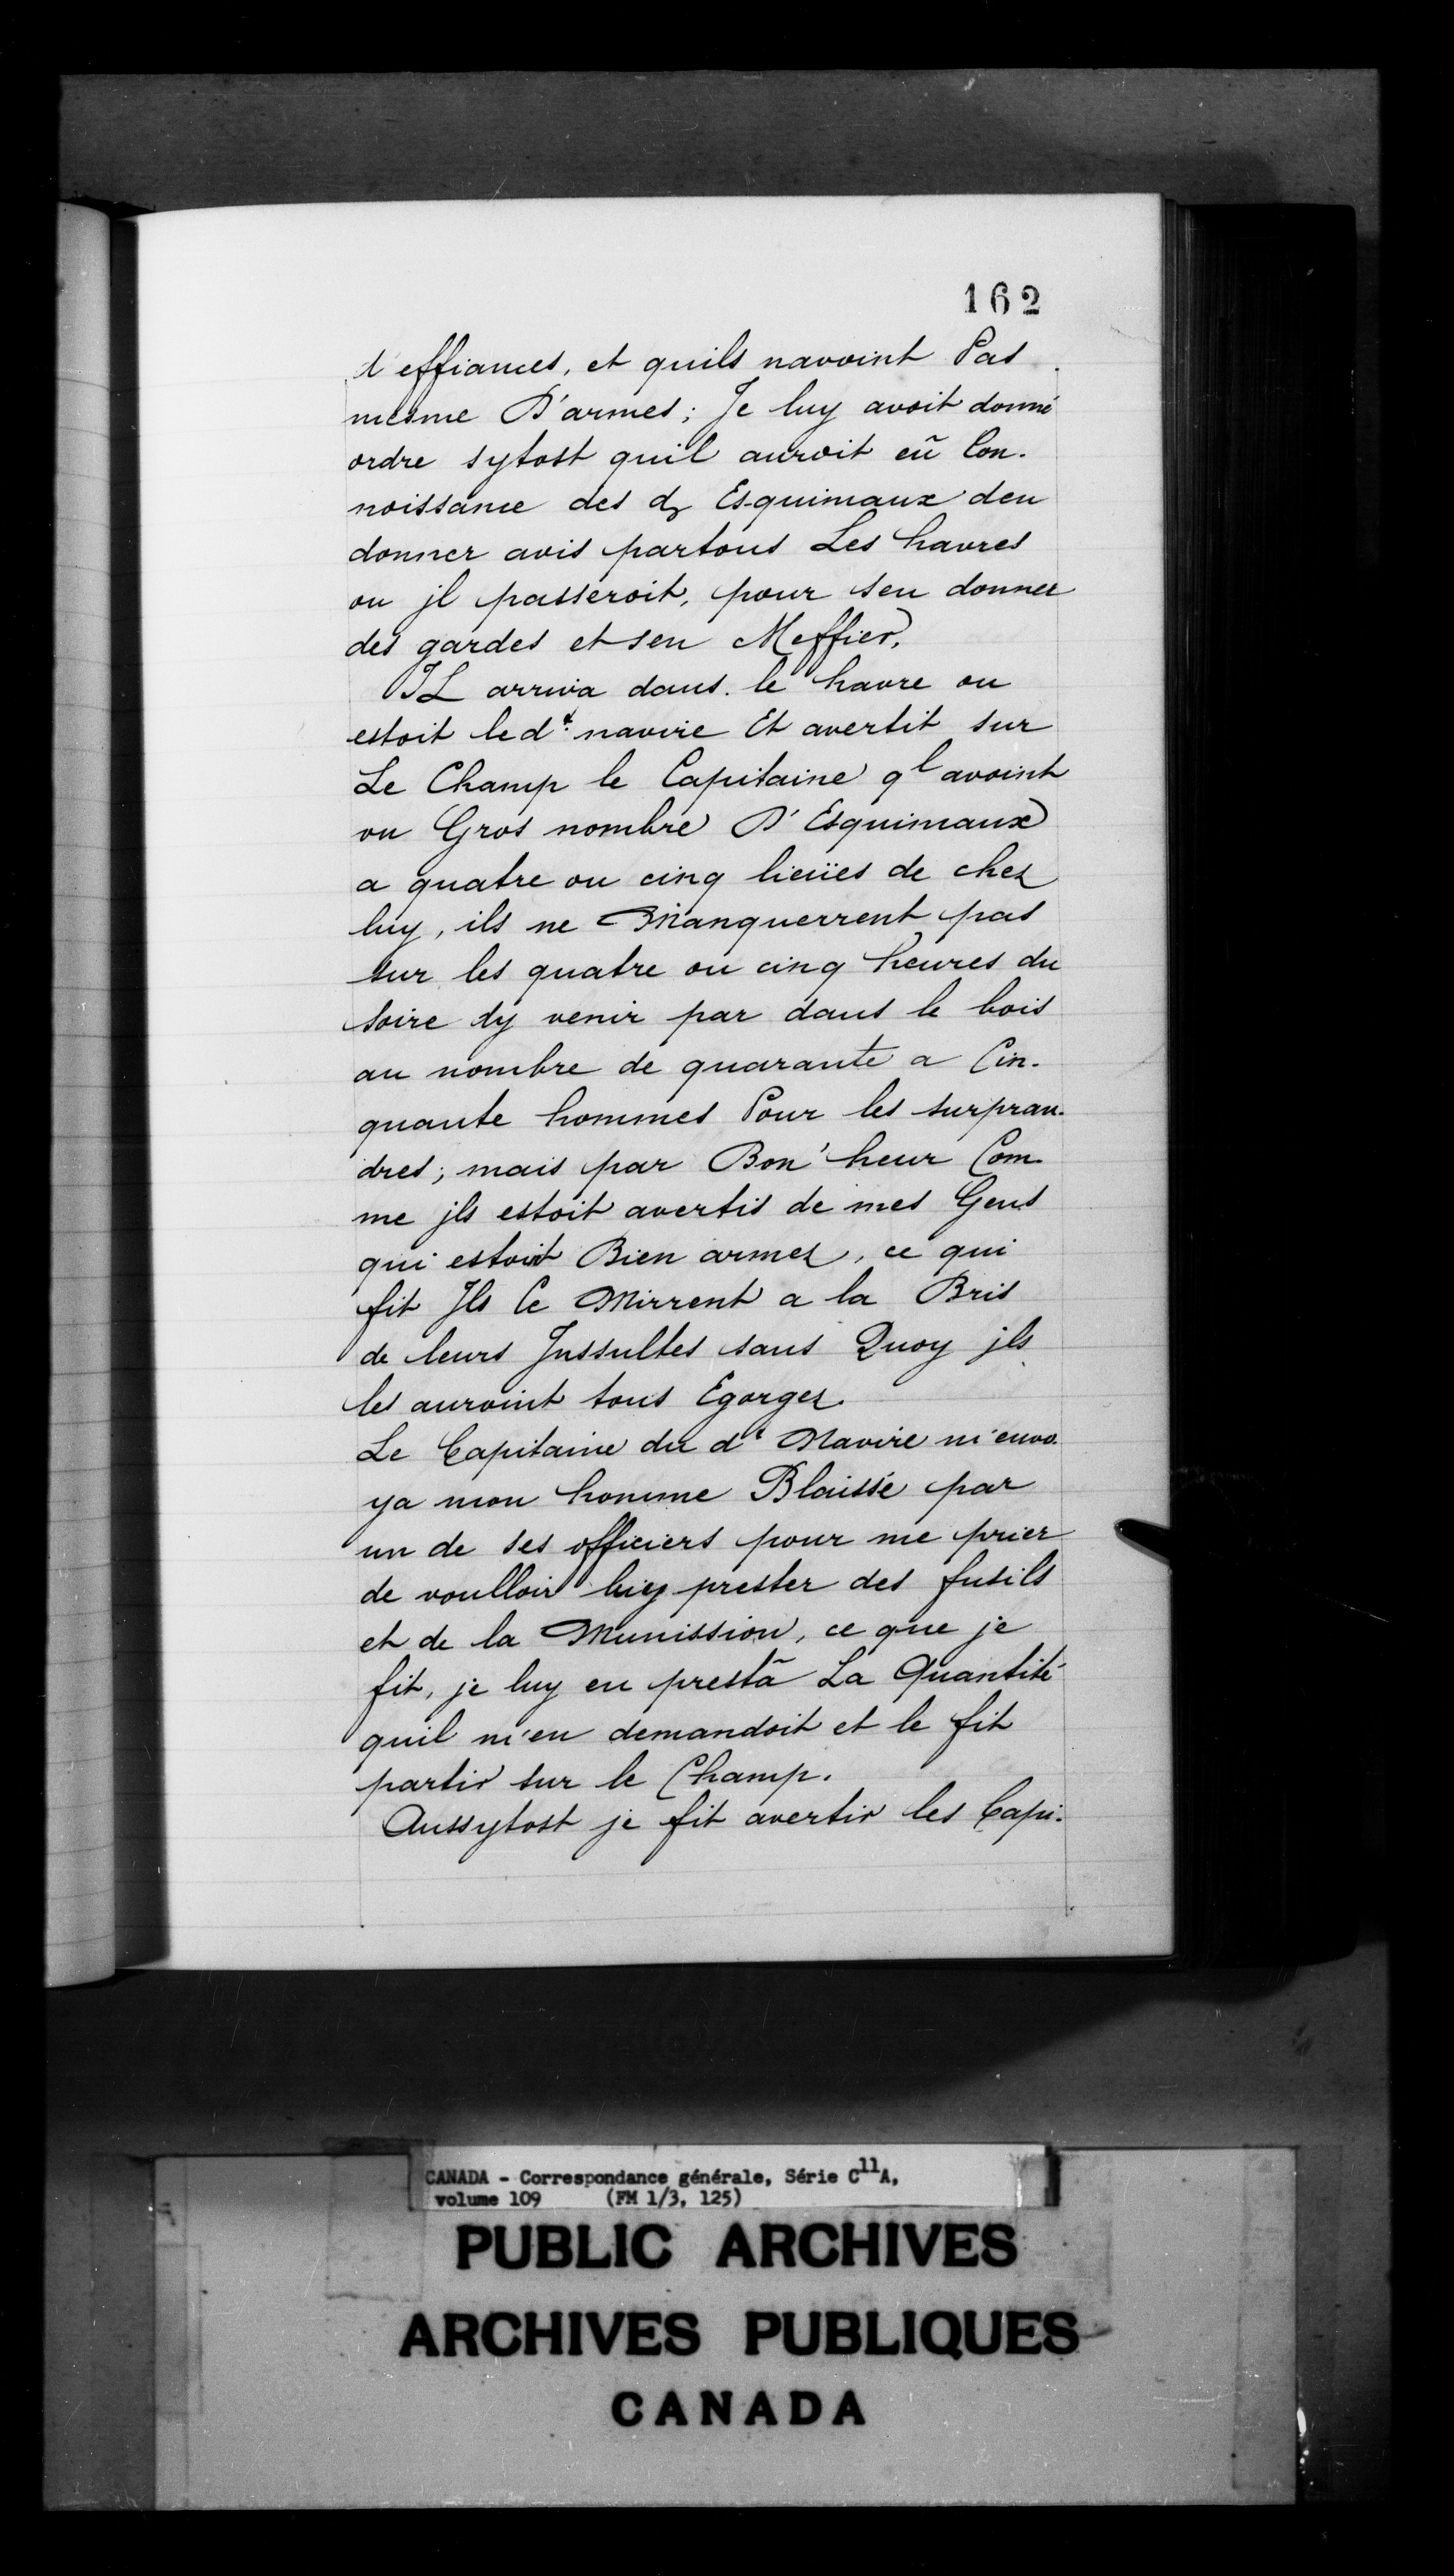 162
d'effiances, et quils navoint Pas
mesme D'armes; Je luy avoit donné
ordre sytost quil auroit eũ Con-
noissance des d. Esquimaux den
donner avis partous Les havres
ou jl passeroit, pour sen donner
des gardes et sen Meffier.
IL arriva dans le havre ou
estoit led.t navire Et avertit sur
Le Champ le Capitaine ql avoint
vu Gros nombre D'Esquimaux
a quatre ou cinq lieües de chez
luy, ils ne Manquerrent pas
sur les quatre ou cinq heures du
soire dy venir par dans le bois
au nombre de quarante a Cin-
quante hommes Pour les surpran-
dres; mais par Bon'heur Com-
me jls estoit avertis de mes Gens
qui estoit Bien armez, ce qui
fit Jls Ce Mirrent a la Bris
de leurs Jnssultes sans Quoy jls
les auroint tous Egorgez.
Le Capitaine du dt Navire m'envo-
ya mon homme Blaissé par
un de ses officiers pour me prier
de voulloir luy prester des fusils
et de la Munission, ce que je
fit, je luy en prestã La Quantité
quil m'en demandoit et le fit
partir sur le Champ.
Aussytost je fit avertir les Capi-
CANADA - Correspondance générale, Série C11A,
volume 109 (FM 1/3, 125)
PUBLIC ARCHIVES
ARCHIVES PUBLIQUES
CANADA